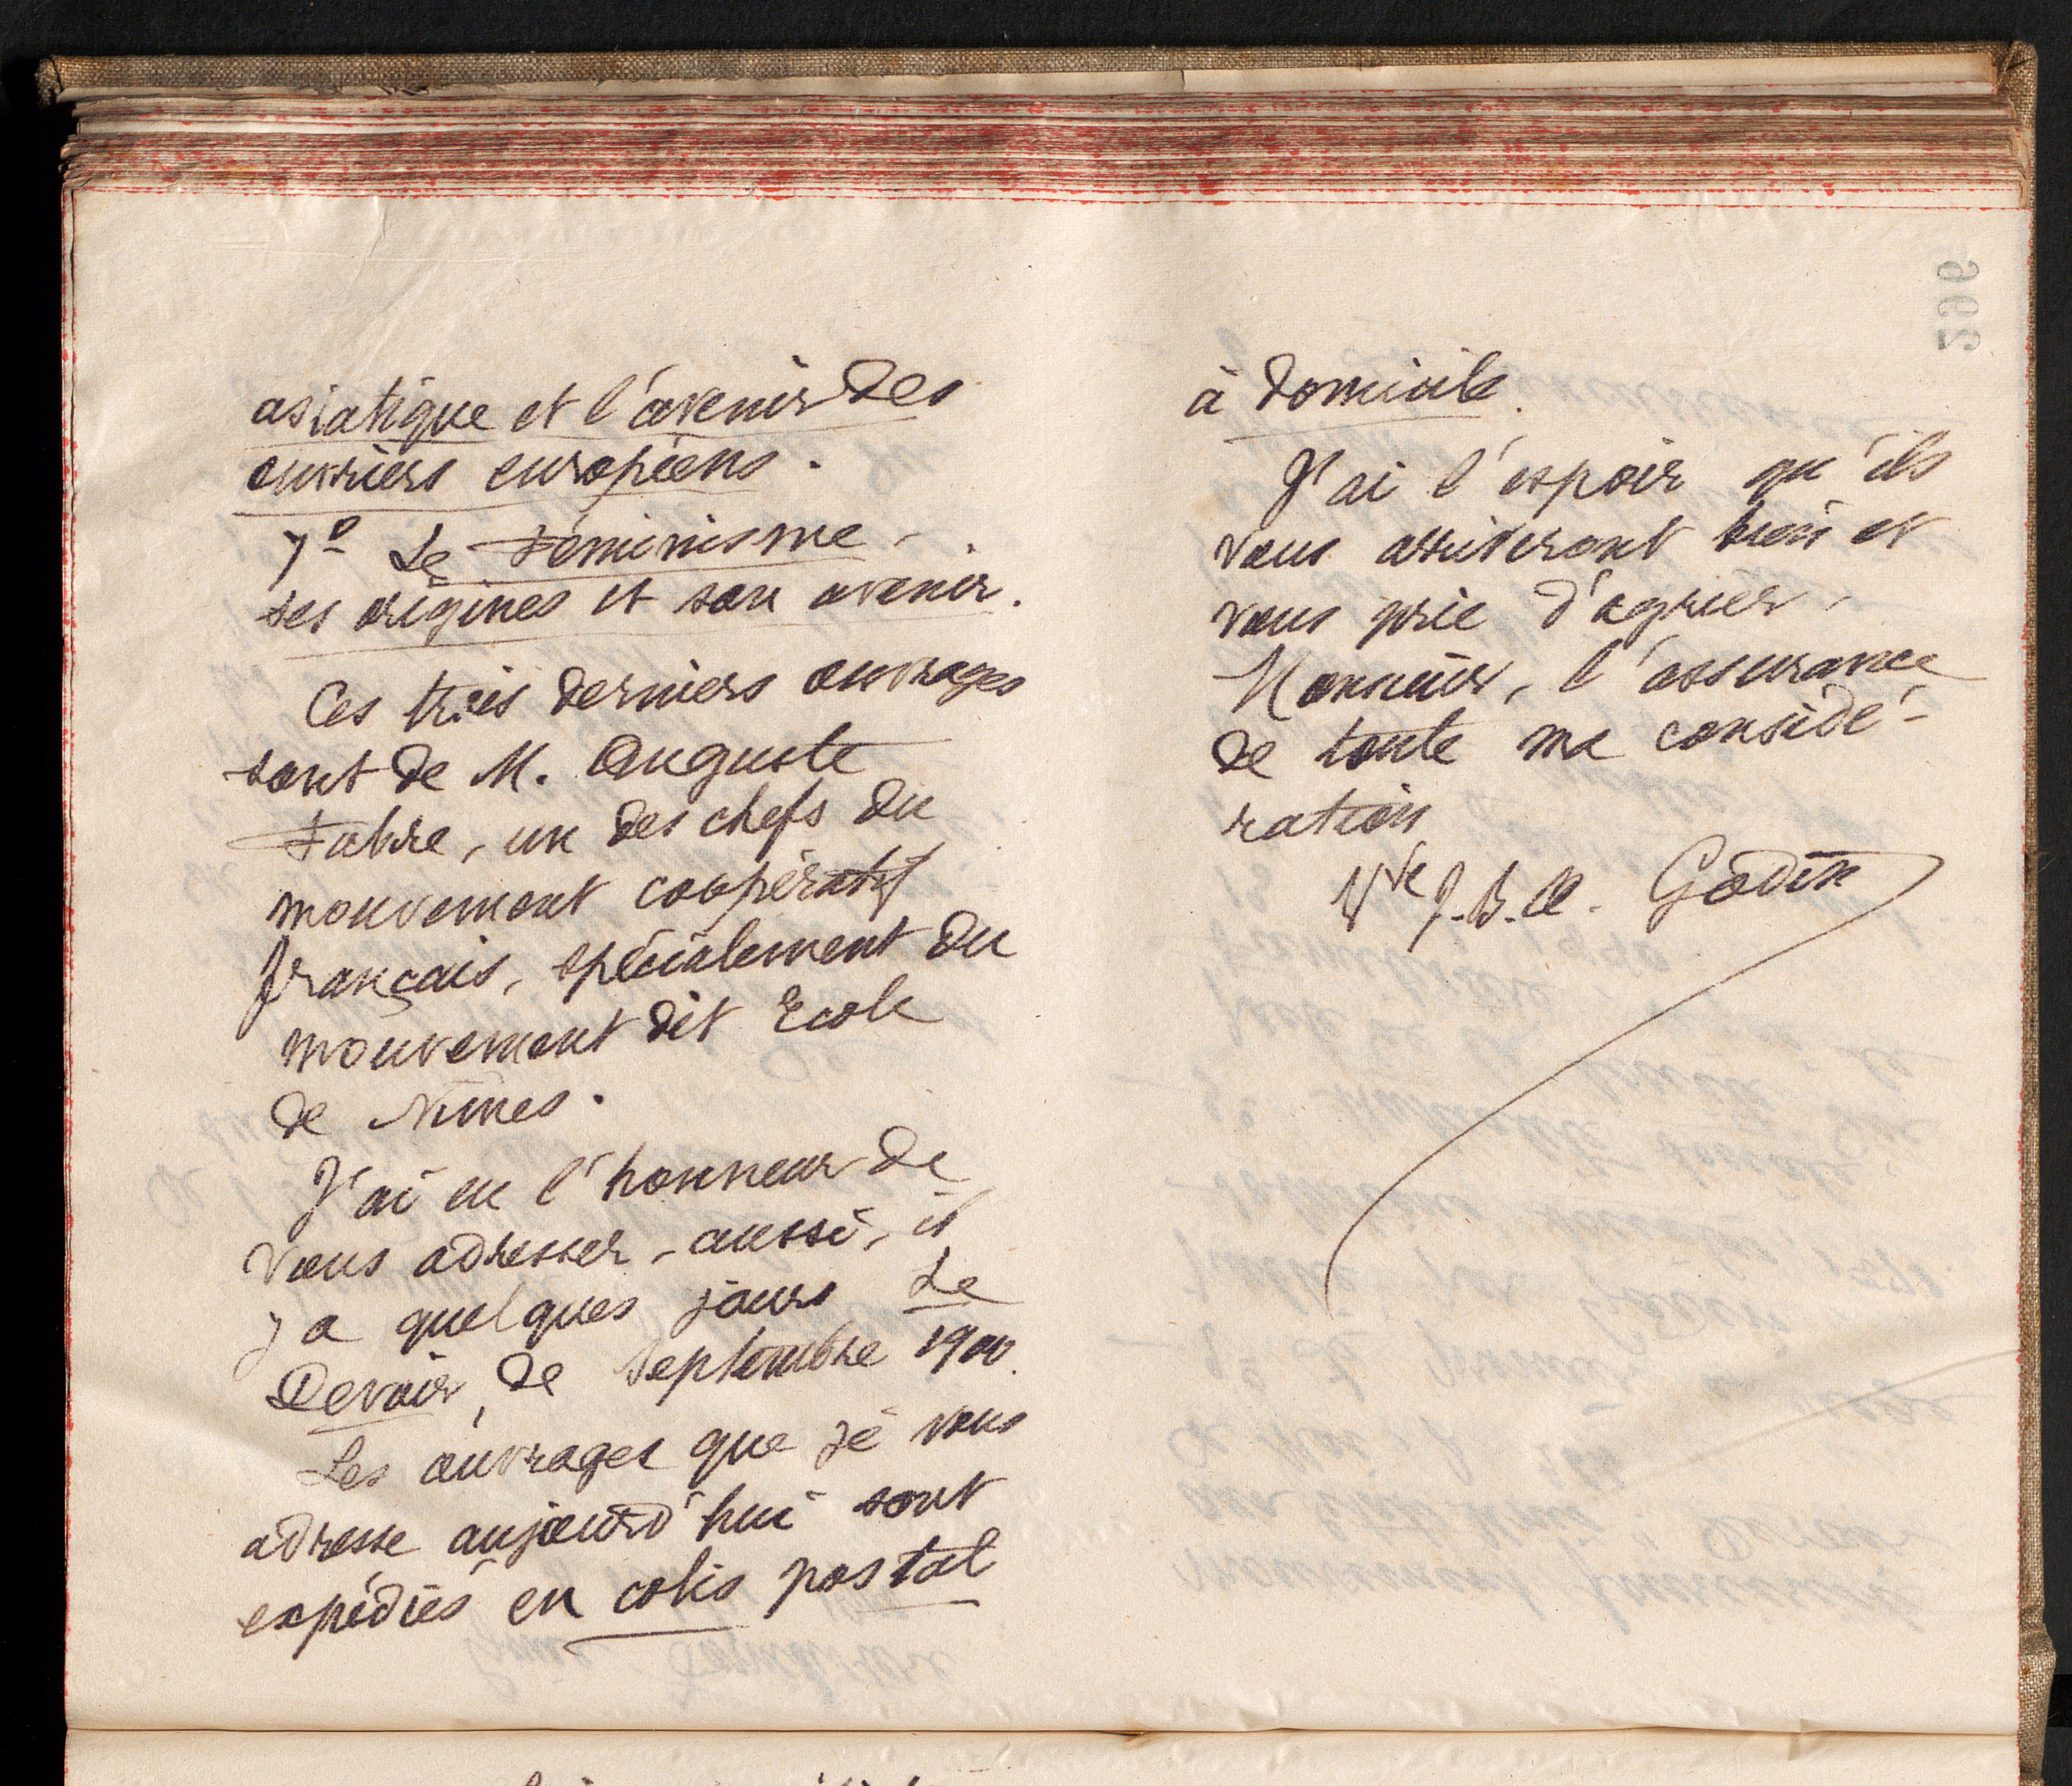 asiatique et l'avenir des
ouvriers européens.
7º Le Féminisme -
ses origines et son avenir.
Ces trois derniers ouvrages
sont de M. Auguste
Fabre, un des chefs du
mouvement coopératif
français, spécialement du
mouvement dit Ecole
de Nîmes.
J'ai eu l'honneur de
vous adresser, aussi, il
y a quelques jours Le
Devoir, de Septembre 1900.
Les ouvrages que je vous
adresse aujourd'hui sont
expédiés en colis postal
à domicile.
J'ai l'espoir qu'ils
vous arriveront bien et
vous prie d'agréer,
Monsieur, l'assurance
de toute ma considé-
ration
Vve J.-B.-A. Godin
296